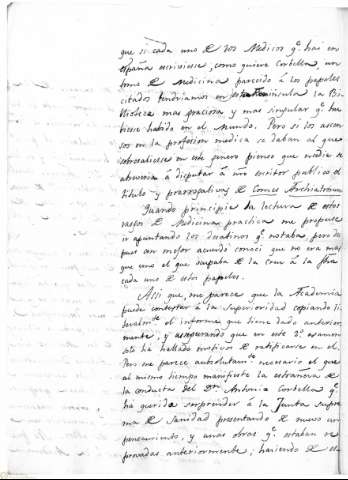 que si cada uno de los Medicos q.e hai en
españa escriviese, como quiere Corbella, un
tomo de Medicina parecido à los papeles
citados tendriamos en esta Peninsula la Bi-
blioteca mas graciosa y mas singular q.e hu-
biese habido en el Mundo. Pero si los ascen-
sos en la profesion medica se daban al que
sobresaliese en este genero pienso que nadie se
atreveria à disputar à ntro escritor publico el
titulo y prerrogativas de Comes Archiatrorum
Quando principie la lectura de estos
rasgos de Medicina practica me propuse
ir apuntando los desatinos q.e notaba pero des
pues con mejor acuerdo conoci que no era mas
que uno el que ocupaba de la cruz à la fha
cada uno de estos papeles.
Assi que, me parece que la Academia
puede contestar à la Superioridad copiando li-
teralm.te el informe que tiene dado anterior-
mente, y asegurando que en este 2.o examen
solo ha hallado motivos de ratificarse en el.
Pero me parece absolutam.te necesario el que
al mismo tiempo manifieste la estrañeza de
la conducta del D.n Antonio Corbella q.e
ha querido sorprender à la Junta supre
ma de sanidad presentando de nuevo un
pensamiento, y unas obras q.e estaban re-
provadas anteriormente, haciendo de el-